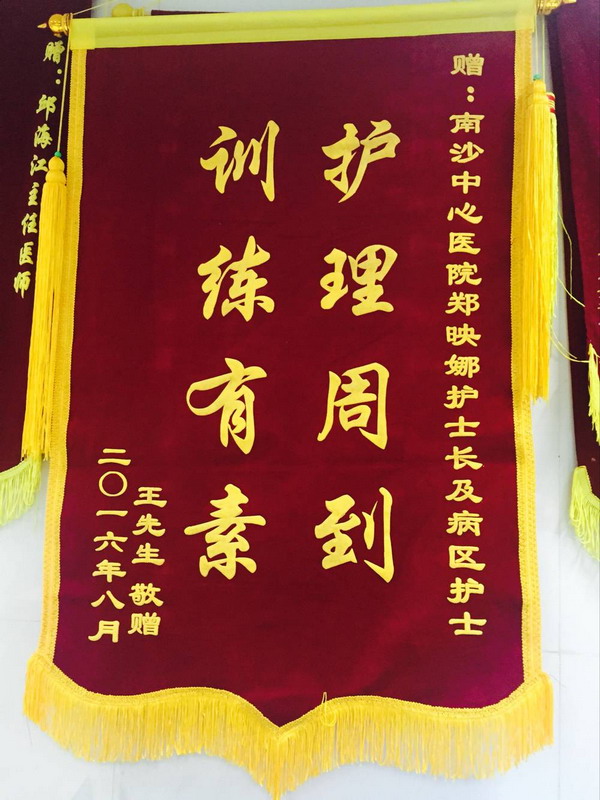 赠：南沙中心医院郑映娜护士长及病区护士
护理周到
训练有素
王先生 敬赠
二〇一六年八月
赠：邱海江主任医师